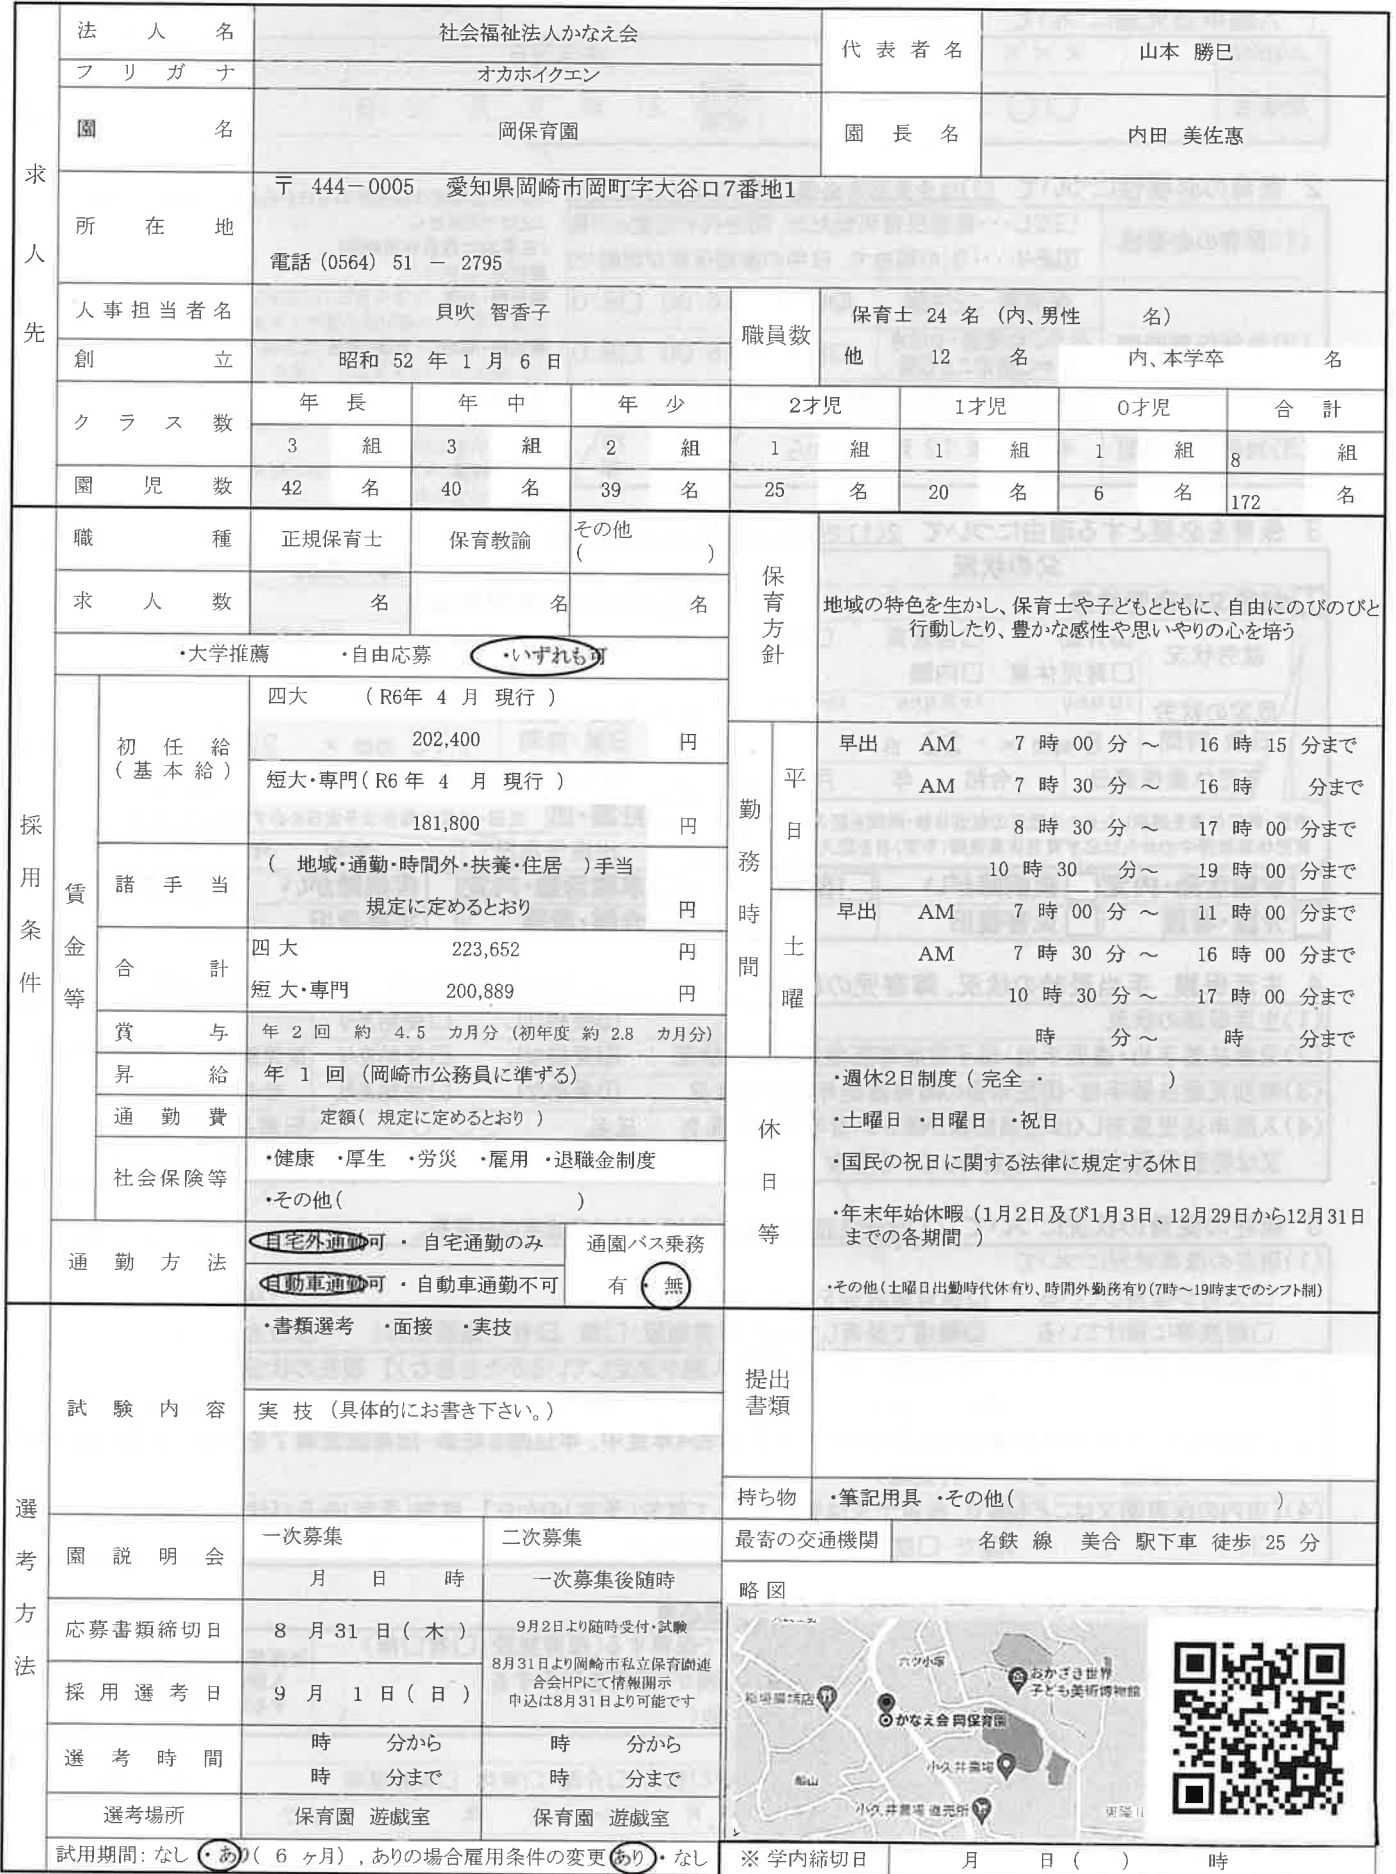 求人先
法人名 社会福祉法人かなえ会 代表者名 山本 勝巳
フリガナ オカホイクエン
園名 岡保育園 園長名 内田 美佐惠
所在地 〒 444-0005 愛知県岡崎市岡町字大谷口7番地1
電話 (0564) 51 - 2795
人事担当者名 貝吹 智香子 職員数 保育士 24 名 (内、男性 名)
創立 昭和 52 年 1 月 6 日 他 12 名 内、本学卒 名
クラス数 年長 年中 年少 2才児 1才児 0才児 合計
3 組 3 組 2 組 1 組 1 組 1 組 8 組
園児数 42 名 40 名 39 名 25 名 20 名 6 名 172 名
採用条件
職種 正規保育士 保育教諭 その他
( )
求人数 名 名 名
・大学推薦 ・自由応募 ・いずれも可
保育方針
地域の特色を生かし、保育士や子どもとともに、自由にのびのびと
行動したり、豊かな感性や思いやりの心を培う
賃金等
初任給
(基本給)
四大 ( R6年 4 月 現行 )
202,400 円
短大・専門( R6 年 4 月 現行 )
181,800 円
諸手当 ( 地域・通勤・時間外・扶養・住居 )手当
規定に定めるとおり 円
合計 四 大 223,652 円
短 大・専門 200,889 円
賞与 年 2 回 約 4.5 カ月分 (初年度 約 2.8 カ月分)
昇給 年 1 回 (岡崎市公務員に準ずる)
通勤費 定額( 規定に定めるとおり )
社会保険等 ・健康 ・厚生 ・労災 ・雇用 ・退職金制度
・その他( )
通勤方法 自宅外通勤可 ・ 自宅通勤のみ 通園バス乗務
自動車通勤可 ・ 自動車通勤不可 有 ・ 無
勤務時間
平日
早出 AM 7 時 00 分 ～ 16 時 15 分まで
AM 7 時 30 分 ～ 16 時 分まで
8 時 30 分 ～ 17 時 00 分まで
10 時 30 分～ 19 時 00 分まで
土曜
早出 AM 7 時 00 分 ～ 11 時 00 分まで
AM 7 時 30 分 ～ 16 時 00 分まで
10 時 30 分 ～ 17 時 00 分まで
時 分 ～ 時 分まで
休日等
・週休2日制度 ( 完全 ・ )
・土曜日 ・日曜日 ・祝日
・国民の祝日に関する法律に規定する休日
・年末年始休暇 (1月2日及び1月3日、12月29日から12月31日
までの各期間 )
・その他(土曜日出勤時代休有り、時間外勤務有り(7時～19時までのシフト制)
選考方法
試験内容 ・書類選考 ・面接 ・実技
実 技 (具体的にお書き下さい。)
提出
書類
持ち物 ・筆記用具 ・その他( )
園説明会 一次募集 二次募集
月 日 時 一次募集後随時
最寄の交通機関 名鉄 線 美合 駅下車 徒歩 25 分
応募書類締切日 8 月 31 日 ( 木 ) 9月2日より随時受付・試験
8月31日より岡崎市私立保育園連
合会HPにて情報開示
申込は8月31日より可能です
採用選考日 9 月 1 日 ( 日 )
選考時間 時 分から 時 分から
時 分まで 時 分まで
選考場所 保育園 遊戯室 保育園 遊戯室
略 図
六ツ小塚
おかざき世界
子ども美術博物館
かなえ会 岡保育園
小久井農場
船山
小久井農場 直売所
試用期間: なし ・ あり( 6 ヶ月) , ありの場合雇用条件の変更 あり ・ なし
※ 学内締切日 月 日 ( ) 時